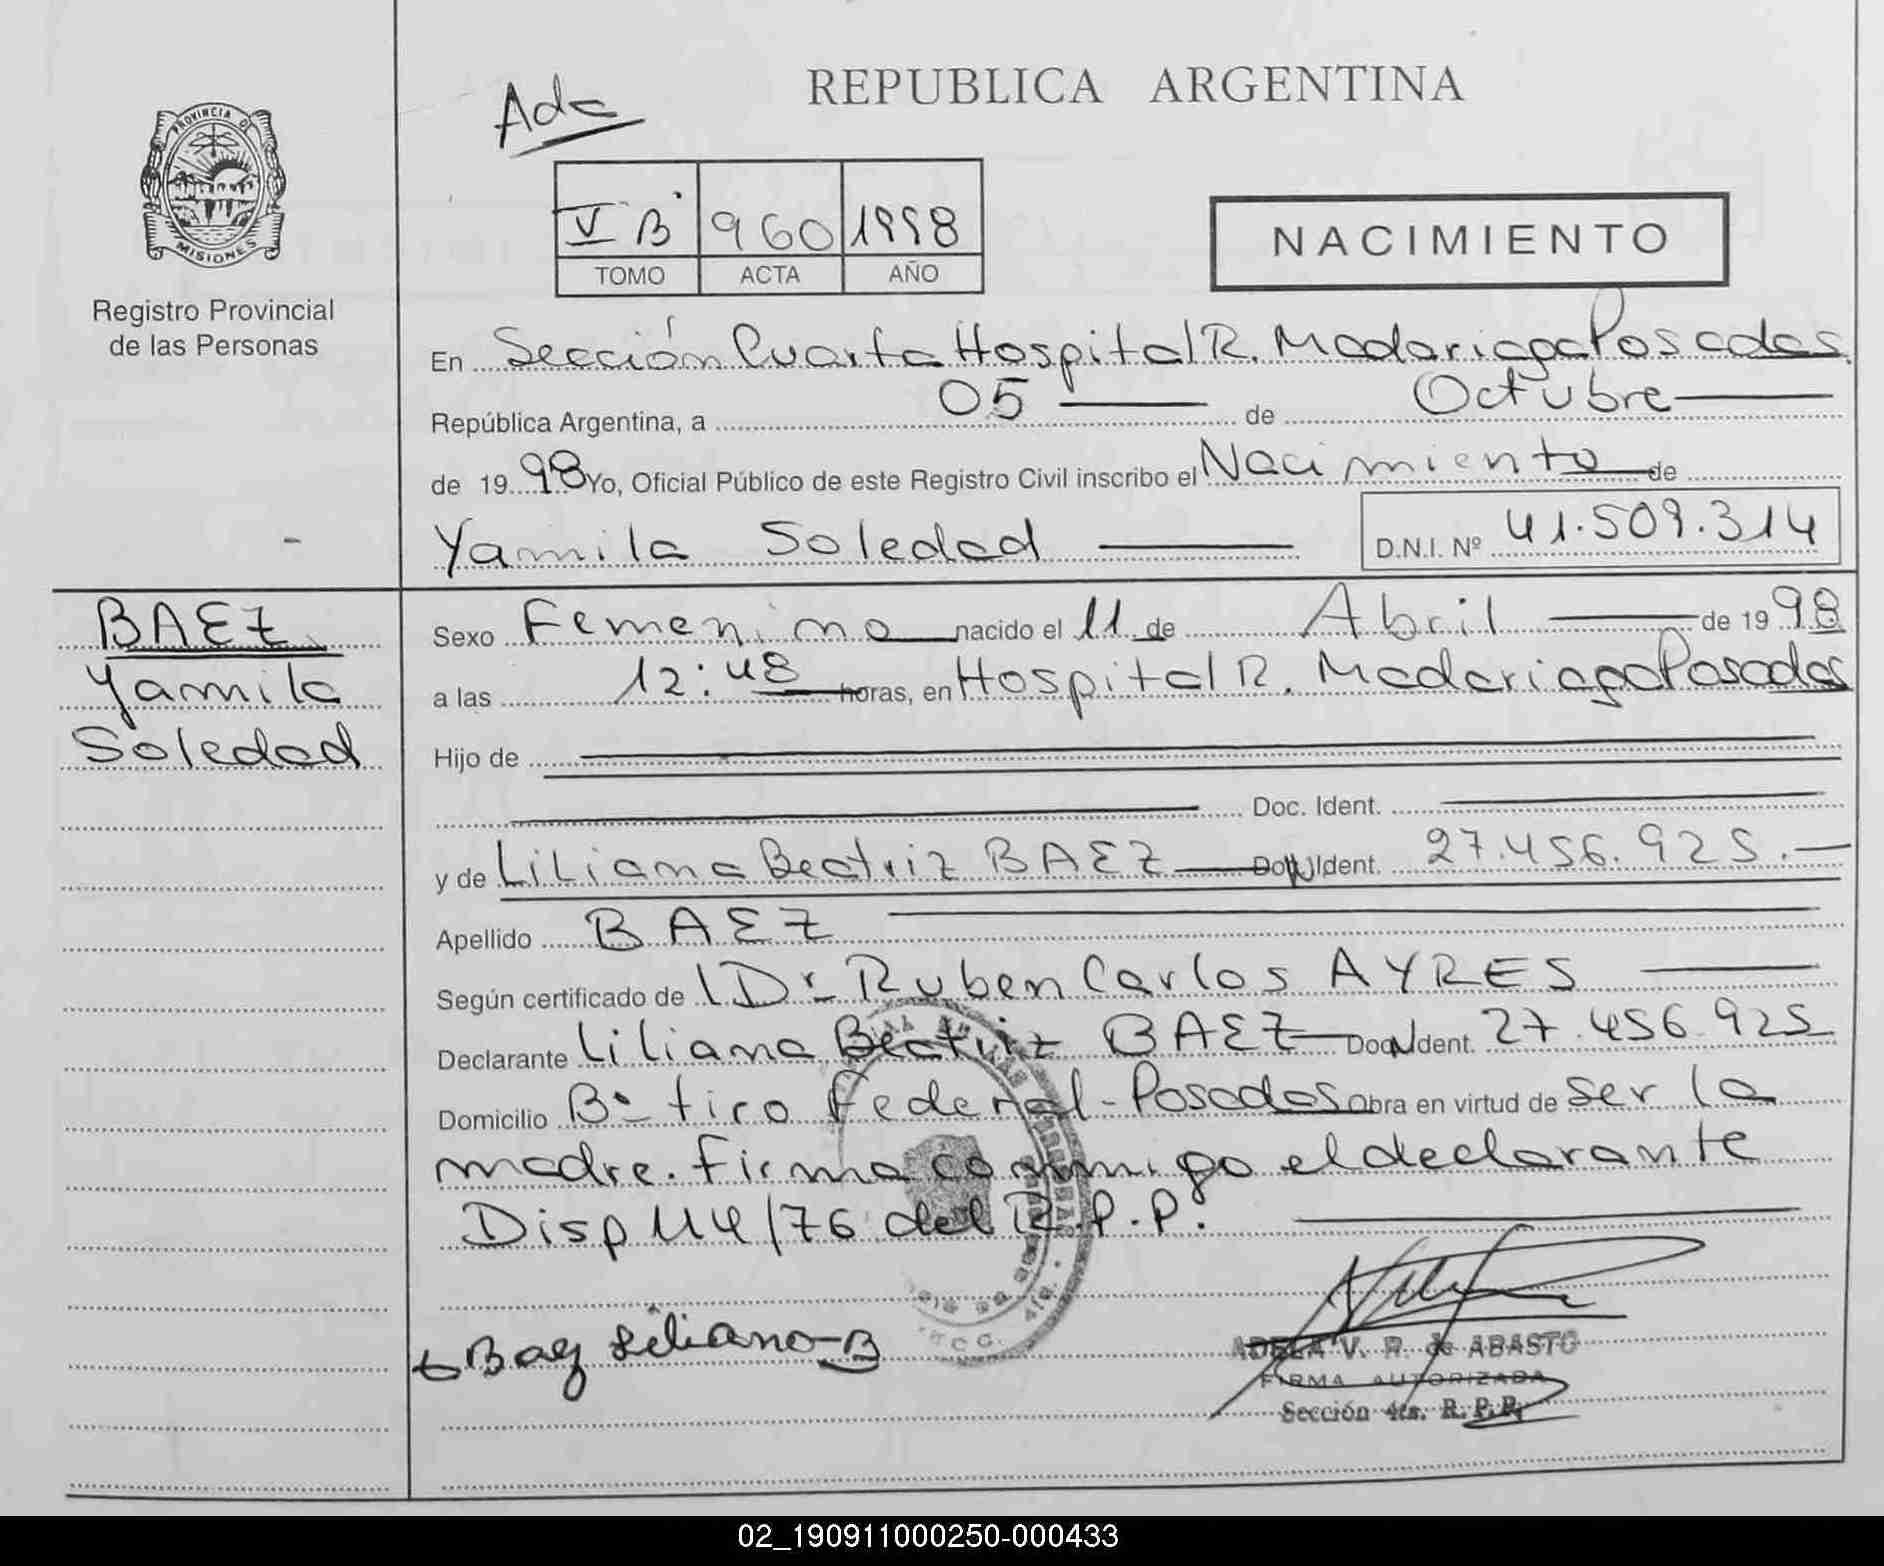 REPUBLICA ARGENTINA
PROVINCIA DE
MISIONES
Registro Provincial
de las Personas
V B 960 1998
TOMO ACTA AÑO
NACIMIENTO
En Sección Cuarta Hospital R. Madariaga Posadas.
República Argentina, a 05 de Octubre
de 1998 Yo, Oficial Público de este Registro Civil inscribo el Nacimiento de
Yamila Soledad D.N.I. Nº 41.509.314
BAEZ
Yamila
Soledad
Sexo Femenino nacido el 11 de Abril de 1998
a las 12:48 horas, en Hospital R. Madariaga Posadas
Hijo de
Doc. Ident.
y de Liliana Beatriz BAEZ Doc. Ident. 27.456.925.
Apellido BAEZ
Según certificado de Dr Ruben Carlos AYRES
Declarante Liliana Beatriz BAEZ Doc. Ident. 27.456.925
Domicilio Bº tiro Federal - Posadas Obra en virtud de ser la
madre. Firma conmigo el declarante
Disp 114/76 del R.P.P.
Baez Liliana B
ADELA V. R. de ABASTO
FIRMA AUTORIZADA
Sección 4ta. R.P.P.
02_190911000250-000433